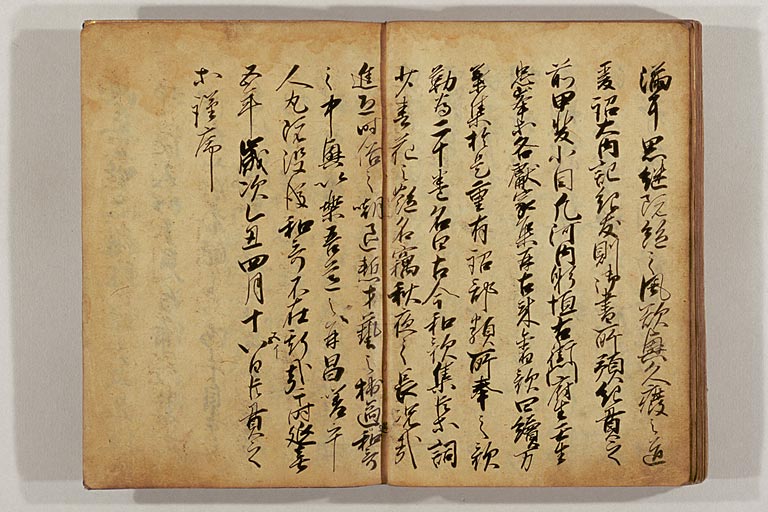 満耳思継既絶之風欲興久癈之道
爰詔大内記紀友則御書所預紀貫之
前甲斐少目凡河内躬恒右衛門府生壬生
忠峯等各獻家集并古来舊歌曰續万
葉集於是重有詔部類所奉之歌
勒為二十巻名曰古今和歌集臣等詞
少春花之艶名竊秋夜之長況哉
進恐時俗之嘲退慙才藝之拙適遇和哥
之中興以樂吾道之再昌嗟乎
人丸既没後和哥不在斯哉于時延喜
五年歳次乙丑四月十八日臣貫之
等謹序